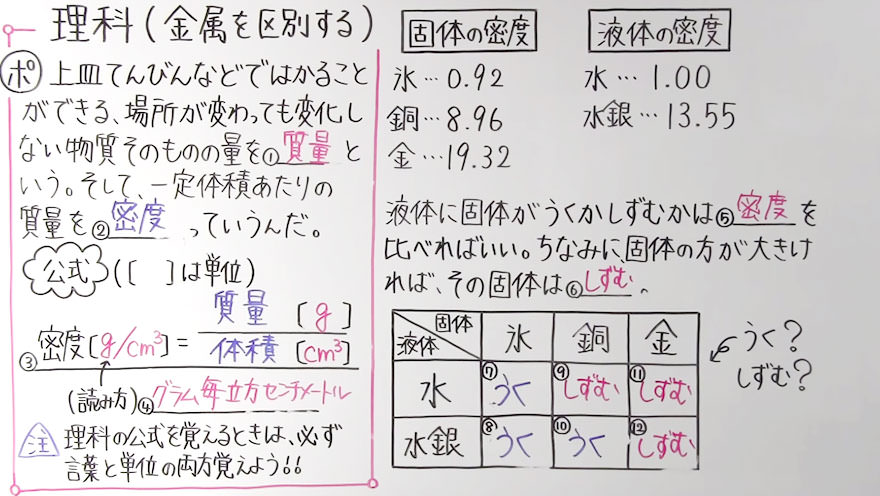 理科(金属を区別する)
ポ 上皿てんびんなどではかること
ができる、場所が変わっても変化し
ない物質そのものの量を①質量と
いう。そして、一定体積あたりの
質量を②密度っていうんだ。
公式([ ]は単位)
③密度[g/cm³]=質量[g]
体積[cm³]
(読み方)④グラム毎立方センチメートル
注 理科の公式を覚えるときは、必ず
言葉と単位の両方覚えよう!!
固体の密度
氷…0.92
銅…8.96
金…19.32
液体の密度
水…1.00
水銀…13.55
液体に固体がうくかしずむかは⑤密度を
比べればいい。ちなみに、固体の方が大きけ
れば、その固体は⑥しずむ。
固体 液体 氷 銅 金
水 ⑦うく ⑨しずむ ⑪しずむ
水銀 ⑧うく ⑩うく ⑫しずむ
うく?
しずむ?